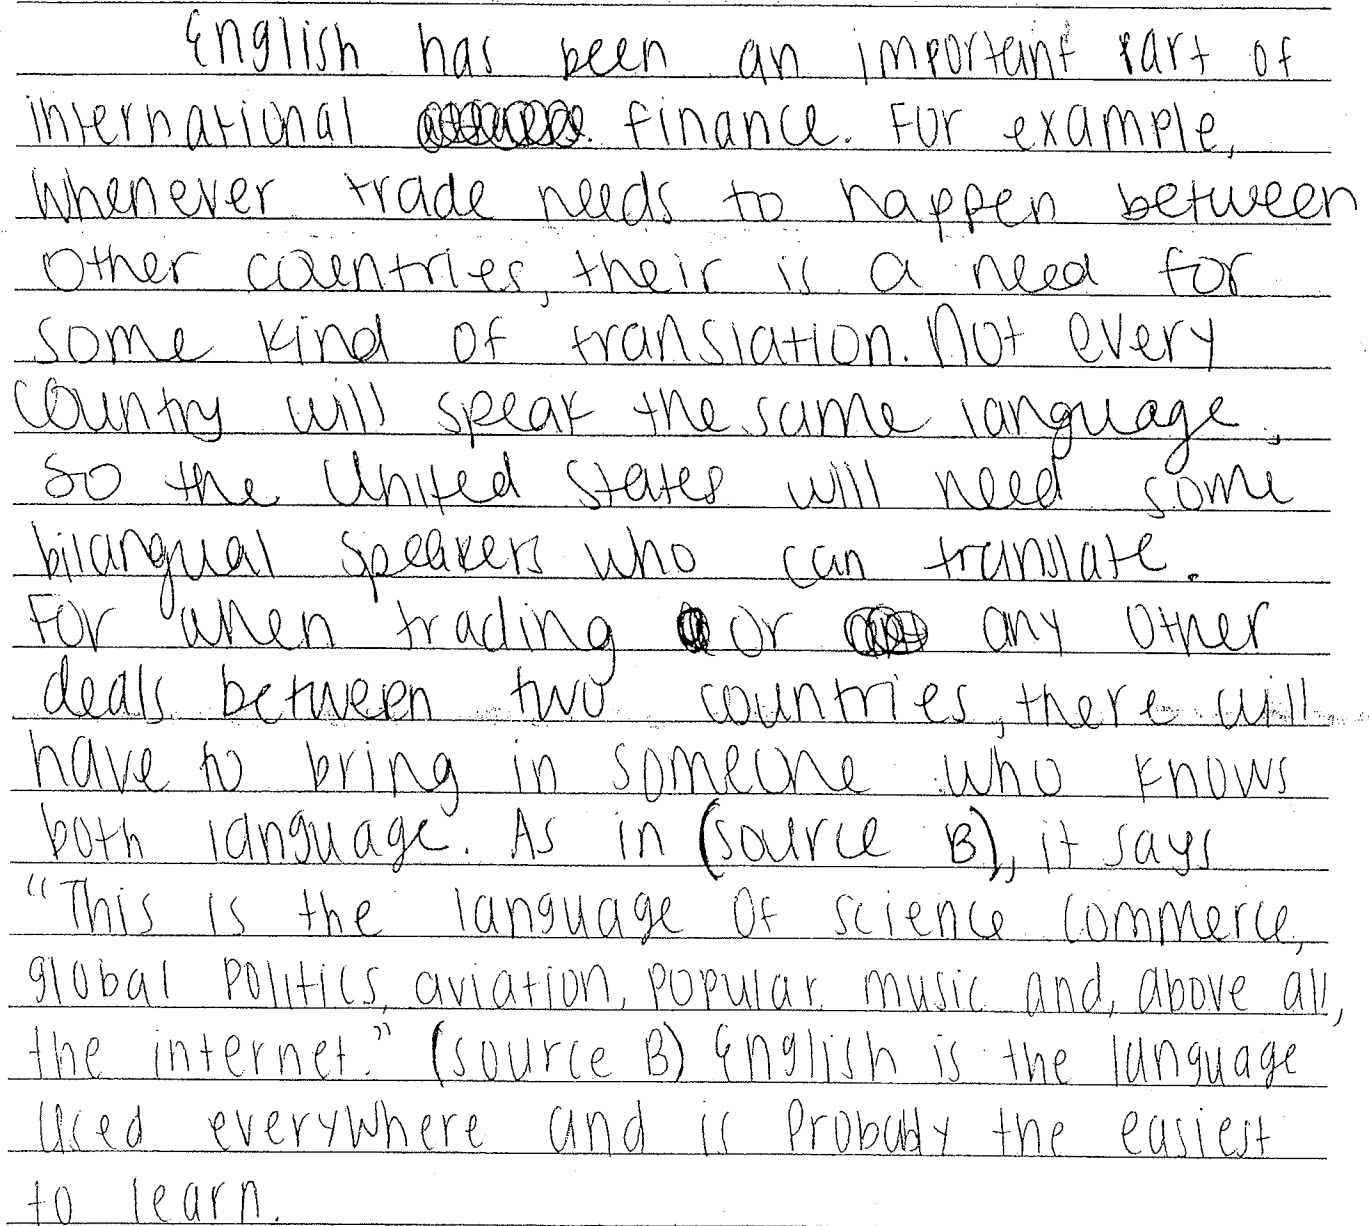 English has been an important part of
international finance. For example,
whenever trade needs to happen between
other countries, their is a need for
some kind of translation. Not every
country will speak the same language.
So the United States will need some
bilangual speakers who can translate.
For when trading or any other
deals between two countries, there will
have to bring in someone who knows
both language. As in (source B), it says
"This is the language of science commerce,
global politics, aviation, popular music and, above all,
the internet." (source B) English is the language
used everywhere and is probably the easiest
to learn.